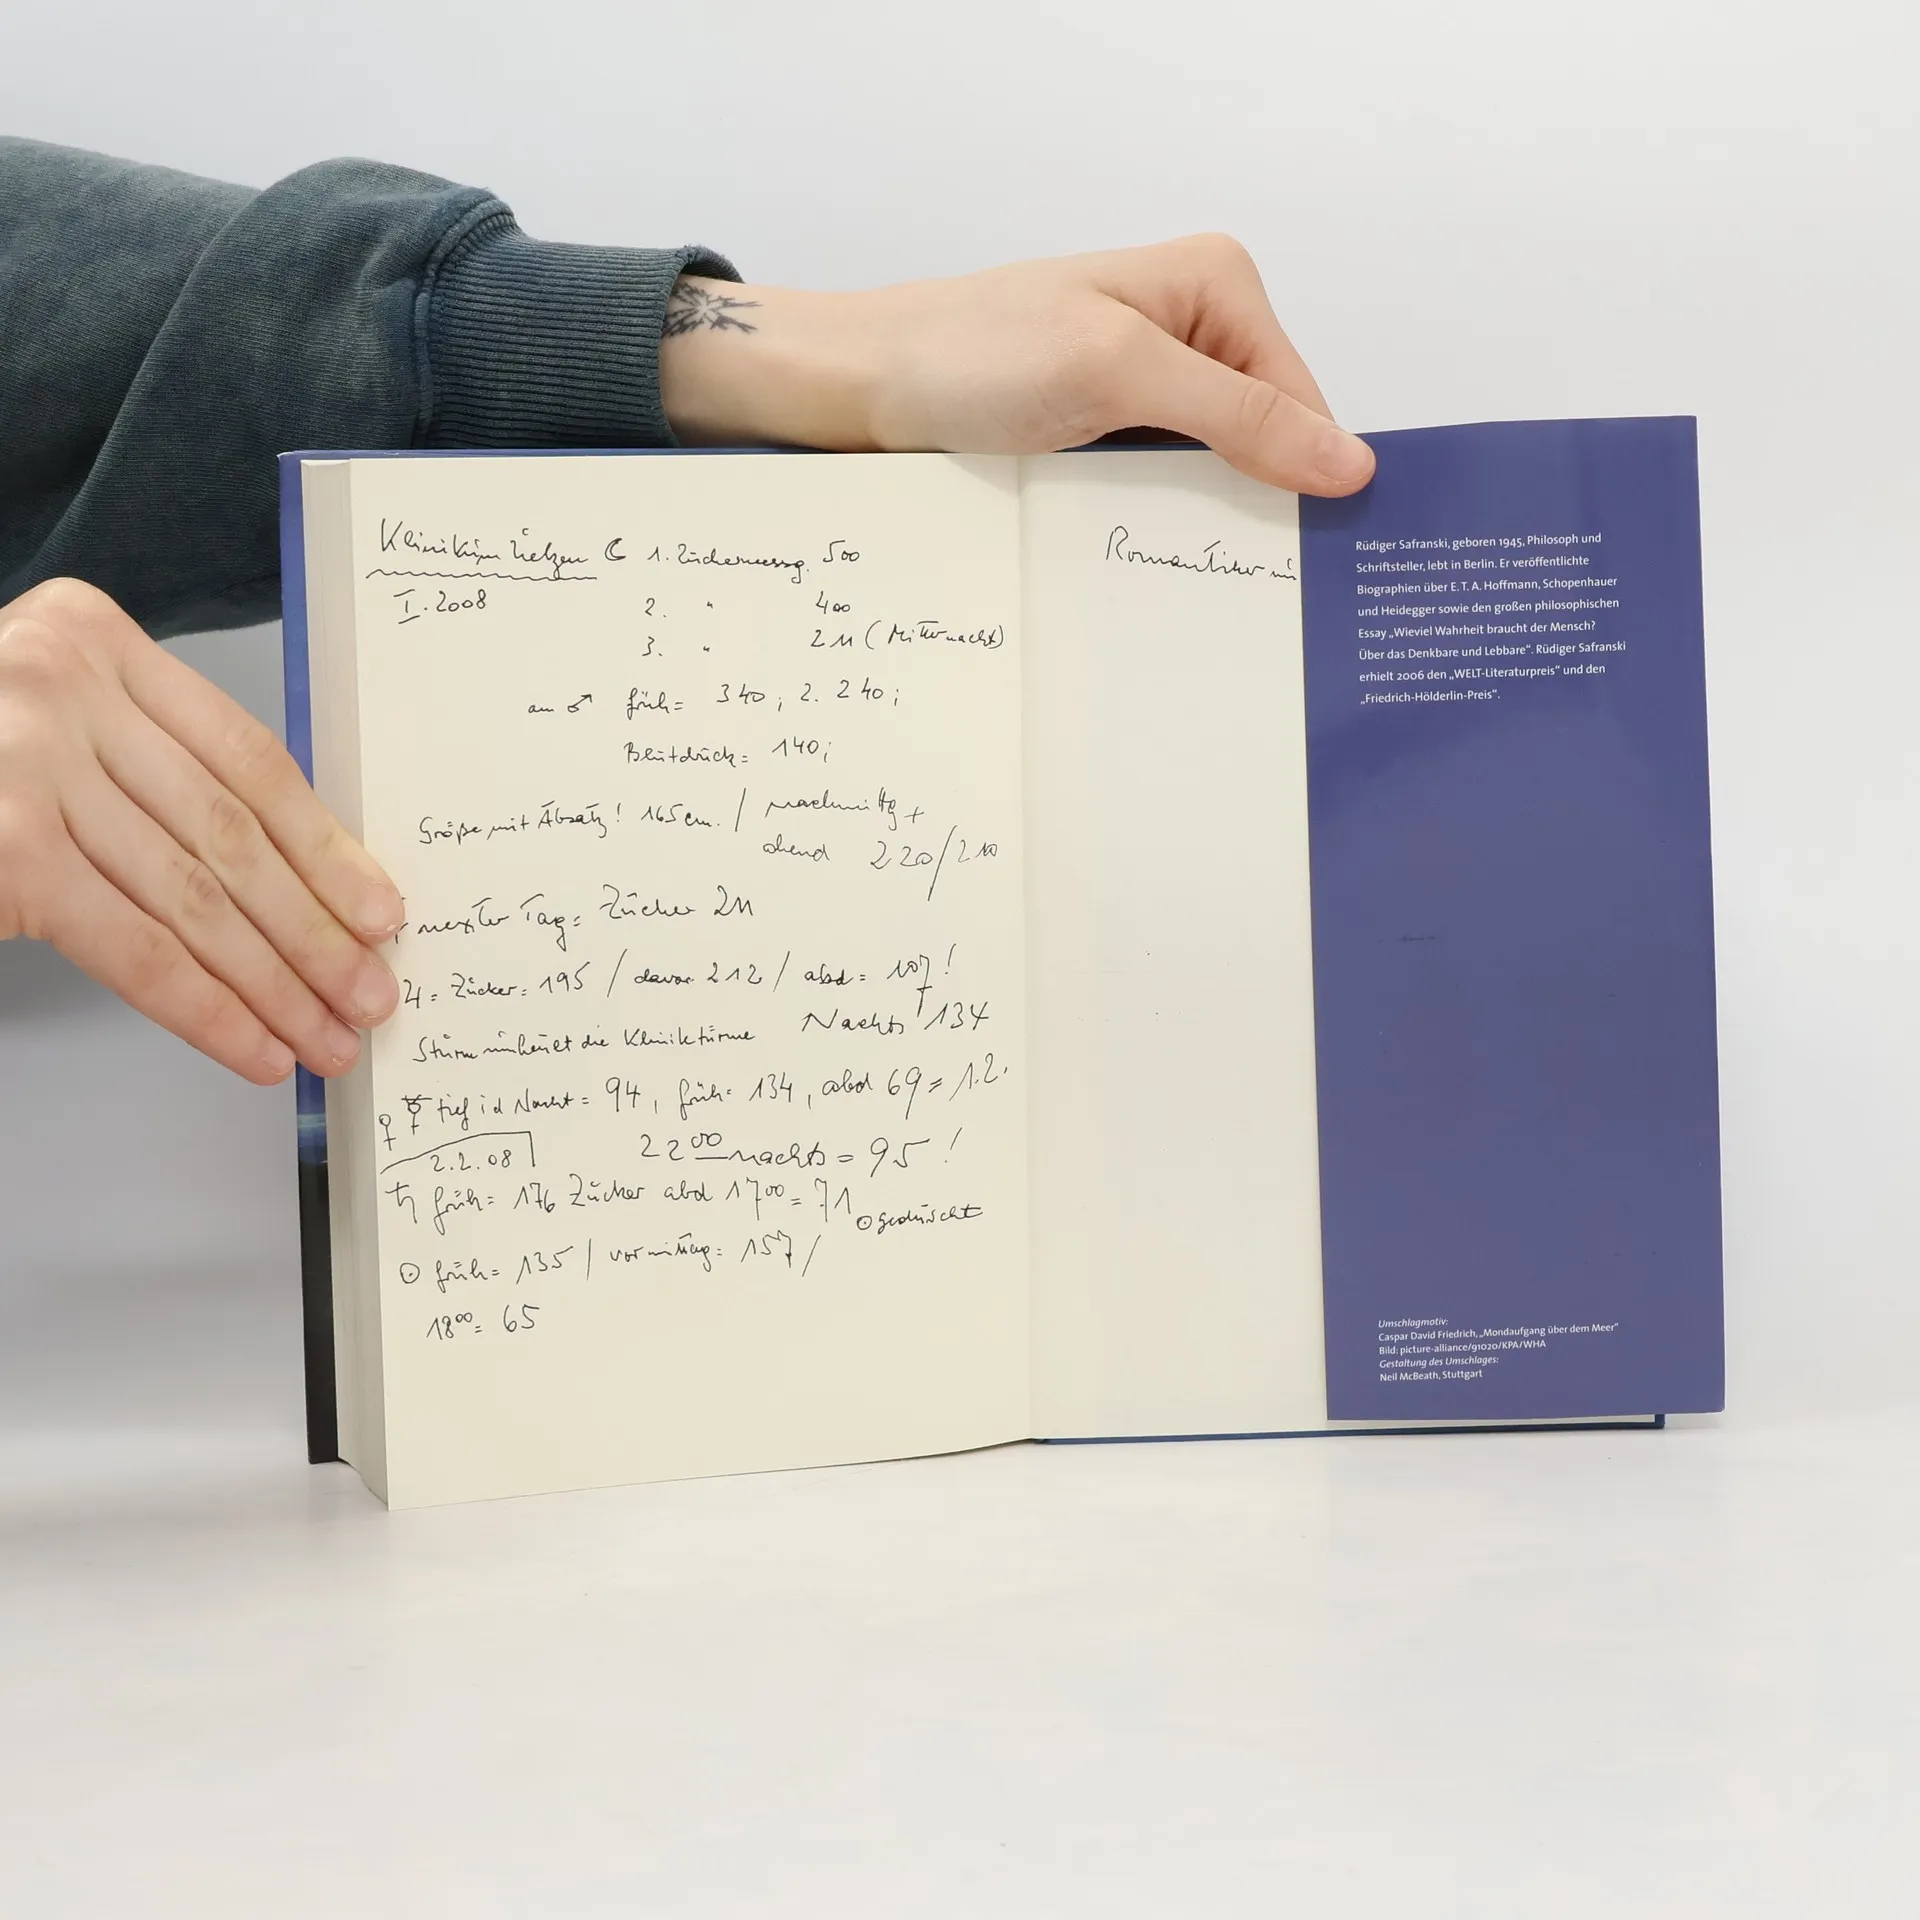 Klinikum Uelzen ☾ 1. Zuckermessg. 500
I. 2008
2. " 400
3. " 211 (Mitternacht)
am ♂ früh = 340 ; 2. 240 ;
Blutdruck = 140 ;
Größe mit Absatz! 165 cm. / nachmittg +
abend 220/210
nexter Tag = Zucker 211
♃ = Zucker = 195 / davor 212 / abd = 107 !
Sturm umheult die Kliniktürme Nachts 134
♀ tief i d Nacht = 94, früh = 134, abd 69 = 1.2.
2.2.08 22⁰⁰ nachts = 95 !
♄ früh = 176 Zucker abd 17⁰⁰ = 71
⊙ geduscht
⊙ früh = 135 / vormittag = 157 /
18⁰⁰ = 65
Romantiker
Rüdiger Safranski, geboren 1945, Philosoph und
Schriftsteller, lebt in Berlin. Er veröffentlichte
Biographien über E. T. A. Hoffmann, Schopenhauer
und Heidegger sowie den großen philosophischen
Essay „Wieviel Wahrheit braucht der Mensch?
Über das Denkbare und Lebbare“. Rüdiger Safranski
erhielt 2006 den „WELT-Literaturpreis“ und den
„Friedrich-Hölderlin-Preis“.
Umschlagmotiv:
Caspar David Friedrich, „Mondaufgang über dem Meer“
Bild: picture-alliance/91020/KPA/WHA
Gestaltung des Umschlages:
Neil McBeath, Stuttgart